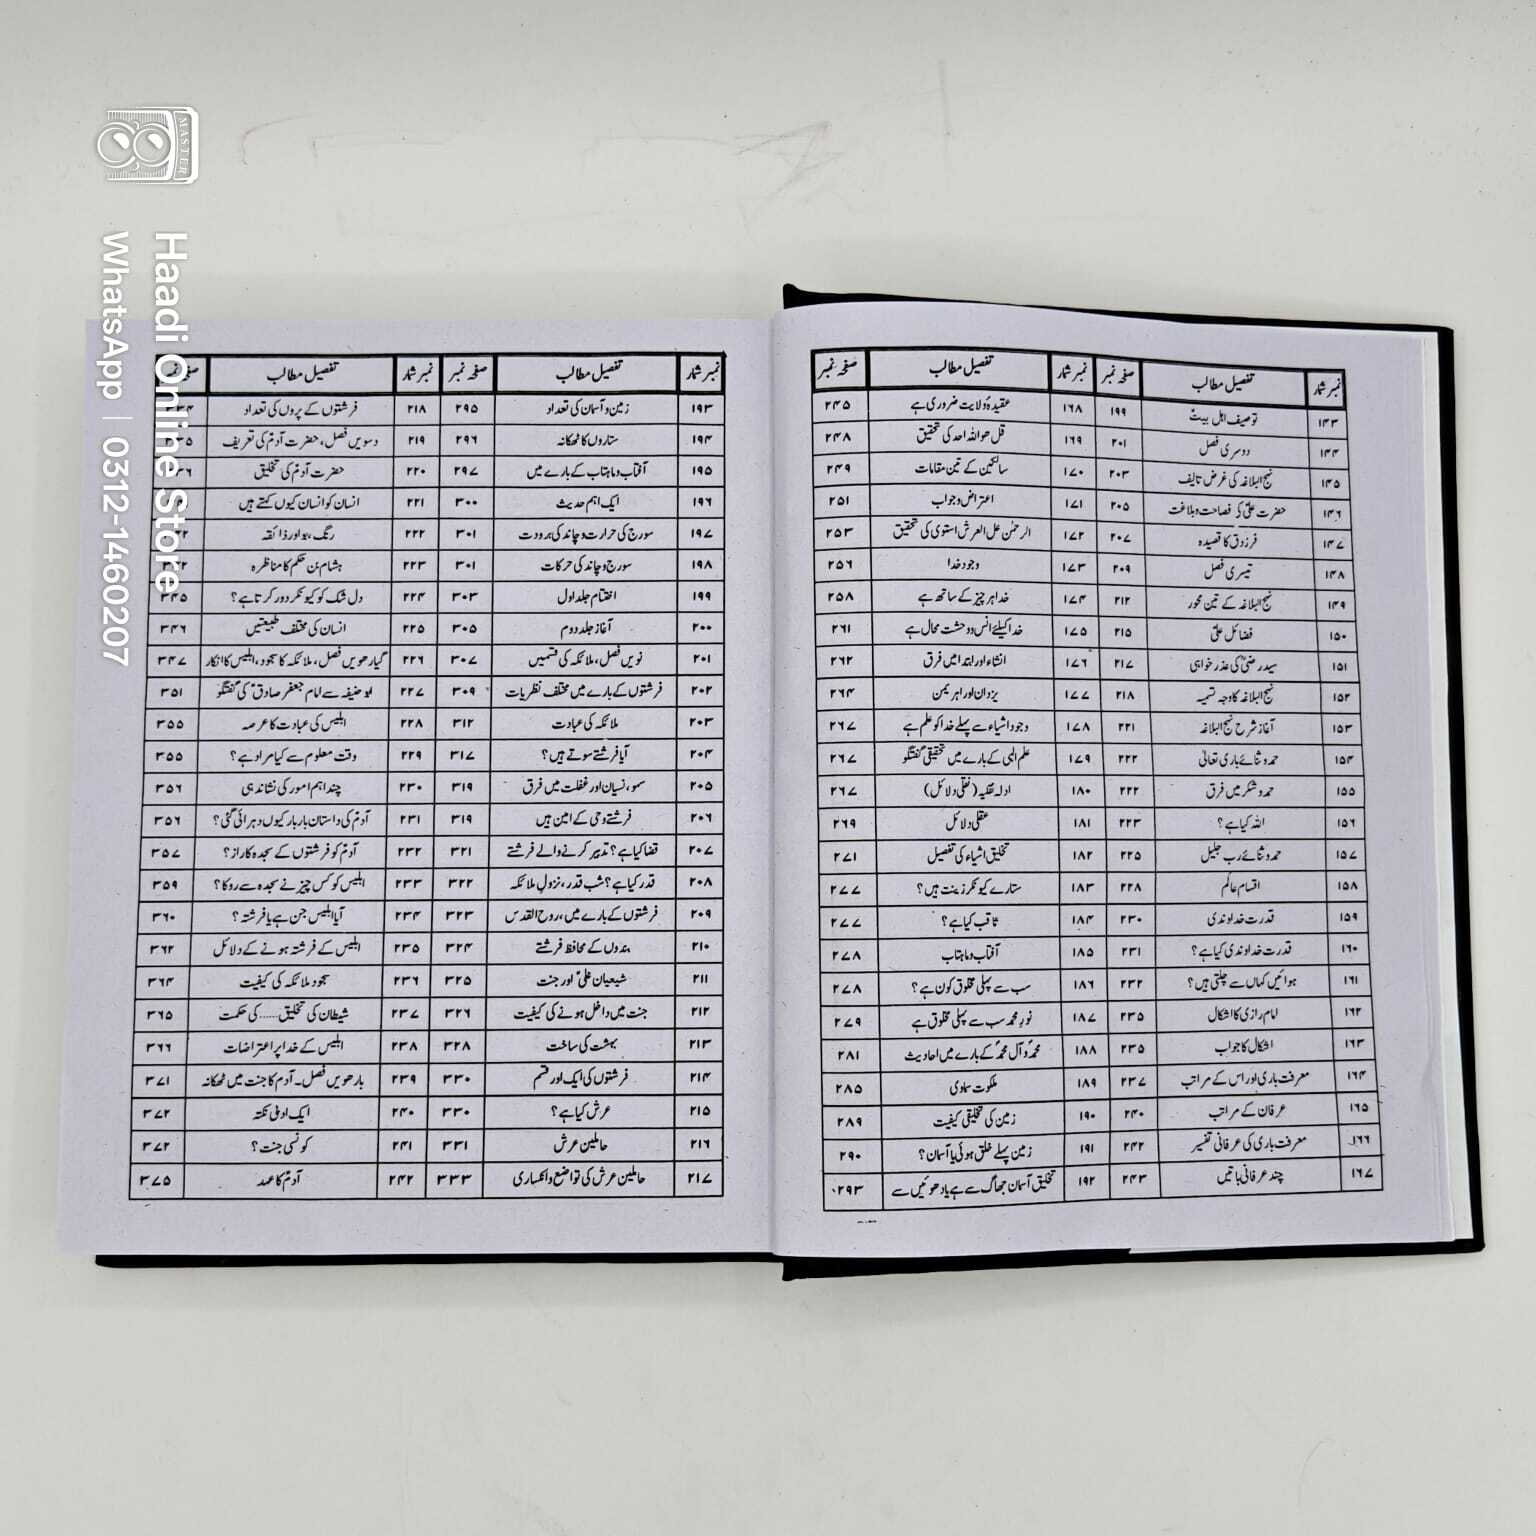 نمبر شمار تفصیل مطالب صفحہ نمبر نمبر شمار تفصیل مطالب صفحہ نمبر
۱۴۳ توصیف اہل بیتؑ ۱۹۹ ۱۶۸ عقیدۂ ولایت ضروری ہے ۲۴۵
۱۴۴ دوسری فصل ۲۰۱ ۱۶۹ قل ھو اللہ احد کی تحقیق ۲۴۸
۱۴۵ نہج البلاغہ کی غرض تالیف ۲۰۳ ۱۷۰ سالکین کے تین مقامات ۲۴۹
۱۴۶ حضرت علیؑ کی فصاحت و بلاغت ۲۰۵ ۱۷۱ اعتراض و جواب ۲۵۱
۱۴۷ فرزدق کا قصیدہ ۲۰۷ ۱۷۲ الرحمٰن علی العرش استویٰ کی تحقیق ۲۵۳
۱۴۸ تیسری فصل ۲۰۹ ۱۷۳ وجود خدا ۲۵۶
۱۴۹ نہج البلاغہ کے تین محور ۲۱۲ ۱۷۴ خدا ہر چیز کے ساتھ ہے ۲۵۸
۱۵۰ فضائل علیؑ ۲۱۵ ۱۷۵ خدا کیلئے انس و وحشت محال ہے ۲۶۱
۱۵۱ سید رضیؒ کی عذر خواہی ۲۱۷ ۱۷۶ انشاء اور ابتدا میں فرق ۲۶۲
۱۵۲ نہج البلاغہ کا وجہ تسمیہ ۲۱۸ ۱۷۷ یزدان اور اہریمن ۲۶۴
۱۵۳ آغاز شرح نہج البلاغہ ۲۲۱ ۱۷۸ وجود اشیاء سے پہلے خدا کو علم ہے ۲۶۷
۱۵۴ حمد و ثنائے باری تعالیٰ ۲۲۲ ۱۷۹ علم الٰہی کے بارے میں تحقیقی گفتگو ۲۶۷
۱۵۵ حمد و شکر میں فرق ۲۲۲ ۱۸۰ ادلہ نقلیہ (نقلی دلائل) ۲۶۷
۱۵۶ اللہ کیا ہے؟ ۲۲۳ ۱۸۱ عقلی دلائل ۲۶۹
۱۵۷ حمد و ثنائے رب جلیل ۲۲۵ ۱۸۲ تخلیق اشیاء کی تفصیل ۲۷۱
۱۵۸ اقسام عالم ۲۲۸ ۱۸۳ ستارے کیونکر زینت ہیں؟ ۲۷۷
۱۵۹ قدرت خداوندی ۲۳۰ ۱۸۴ ثاقب کیا ہے؟ ۲۷۷
۱۶۰ قدرت خداوندی کیا ہے؟ ۲۳۱ ۱۸۵ آفتاب و ماہتاب ۲۷۸
۱۶۱ ہوائیں کہاں سے چلتی ہیں؟ ۲۳۲ ۱۸۶ سب سے پہلی مخلوق کون ہے؟ ۲۷۸
۱۶۲ امام رازی کا اشکال ۲۳۵ ۱۸۷ نور محمد سب سے پہلی مخلوق ہے ۲۷۹
۱۶۳ اشکال کا جواب ۲۳۵ ۱۸۸ محمدؐ و آل محمدؐ کے بارے میں احادیث ۲۸۱
۱۶۴ معرفت باری اور اس کے مراتب ۲۳۷ ۱۸۹ ملکوت سماوی ۲۸۵
۱۶۵ عرفان کے مراتب ۲۴۰ ۱۹۰ زمین کی تخلیقی کیفیت ۲۸۹
۱۶۶ معرفت باری کی عرفانی تفسیر ۲۴۲ ۱۹۱ زمین پہلے خلق ہوئی یا آسمان؟ ۲۹۰
۱۶۷ چند عرفانی باتیں ۲۴۳ ۱۹۲ تخلیق آسمان جھاگ سے ہے یا دھوئیں سے ۲۹۳
نمبر شمار تفصیل مطالب صفحہ نمبر نمبر شمار تفصیل مطالب صفحہ نمبر
۱۹۳ زمین و آسمان کی تعداد ۲۹۵ ۲۱۸ فرشتوں کے پروں کی تعداد
۱۹۴ ستاروں کا ٹھکانہ ۲۹۶ ۲۱۹ دسویں فصل، حضرت آدمؑ کی تعریف
۱۹۵ آفتاب و ماہتاب کے بارے میں ۲۹۷ ۲۲۰ حضرت آدمؑ کی تخلیق
۱۹۶ ایک اہم حدیث ۳۰۰ ۲۲۱ انسان کو انسان کیوں کہتے ہیں
۱۹۷ سورج کی حرارت و چاند کی برودت ۳۰۱ ۲۲۲ رنگ، بو اور ذائقہ
۱۹۸ سورج و چاند کی حرکات ۳۰۱ ۲۲۳ ہشام بن حکم کا مناظرہ
۱۹۹ اختتام جلد اول ۳۰۳ ۲۲۴ دل شک کو کیونکر دور کرتا ہے؟ ۳۴۵
۲۰۰ آغاز جلد دوم ۳۰۵ ۲۲۵ انسان کی مختلف طبیعتیں ۳۴۶
۲۰۱ نویں فصل، ملائکہ کی قسمیں ۳۰۷ ۲۲۶ گیارھویں فصل، ملائکہ کا سجود، ابلیس کا انکار ۳۴۷
۲۰۲ فرشتوں کے بارے میں مختلف نظریات ۳۰۹ ۲۲۷ ابو حنیفہ سے امام جعفر صادقؑ کی گفتگو ۳۵۱
۲۰۳ ملائکہ کی عبادت ۳۱۲ ۲۲۸ ابلیس کی عبادت کا عرصہ ۳۵۵
۲۰۴ آیا فرشتے سوتے ہیں؟ ۳۱۷ ۲۲۹ وقت معلوم سے کیا مراد ہے؟ ۳۵۵
۲۰۵ سہو، نسیان اور غفلت میں فرق ۳۱۹ ۲۳۰ چند اہم امور کی نشاندہی ۳۵۶
۲۰۶ فرشتے وحی کے امین ہیں ۳۱۹ ۲۳۱ آدمؑ کی داستان بار بار کیوں دہرائی گئی؟ ۳۵۶
۲۰۷ قضا کیا ہے؟ تدبیر کرنے والے فرشتے ۳۲۱ ۲۳۲ آدمؑ کو فرشتوں کے سجدہ کا راز؟ ۳۵۷
۲۰۸ قدر کیا ہے؟ شب قدر، نزول ملائکہ ۳۲۲ ۲۳۳ ابلیس کو کس چیز نے سجدہ سے روکا؟ ۳۵۹
۲۰۹ فرشتوں کے بارے میں، روح القدس ۳۲۳ ۲۳۴ آیا ابلیس جن ہے یا فرشتہ؟ ۳۶۰
۲۱۰ بندوں کے محافظ فرشتے ۳۲۴ ۲۳۵ ابلیس کے فرشتہ ہونے کے دلائل ۳۶۲
۲۱۱ شیعیان علیؑ اور جنت ۳۲۵ ۲۳۶ سجود ملائکہ کی کیفیت ۳۶۴
۲۱۲ جنت میں داخل ہونے کی کیفیت ۳۲۶ ۲۳۷ شیطان کی تخلیق ...... کی حکمت ۳۶۵
۲۱۳ بہشت کی ساخت ۳۲۸ ۲۳۸ ابلیس کے خدا پر اعتراضات ۳۶۶
۲۱۴ فرشتوں کی ایک اور قسم ۳۳۰ ۲۳۹ بارھویں فصل۔ آدم کا جنت میں ٹھکانہ ۳۷۱
۲۱۵ عرش کیا ہے؟ ۳۳۰ ۲۴۰ ایک ادبی نکتہ ۳۷۲
۲۱۶ حاملین عرش ۳۳۱ ۲۴۱ کونسی جنت؟ ۳۷۲
۲۱۷ حاملین عرش کی تواضع و انکساری ۳۳۳ ۲۴۲ آدمؑ کا عہد ۳۷۵
MASTER
Haadi Online Store
WhatsApp | 0312-1460207